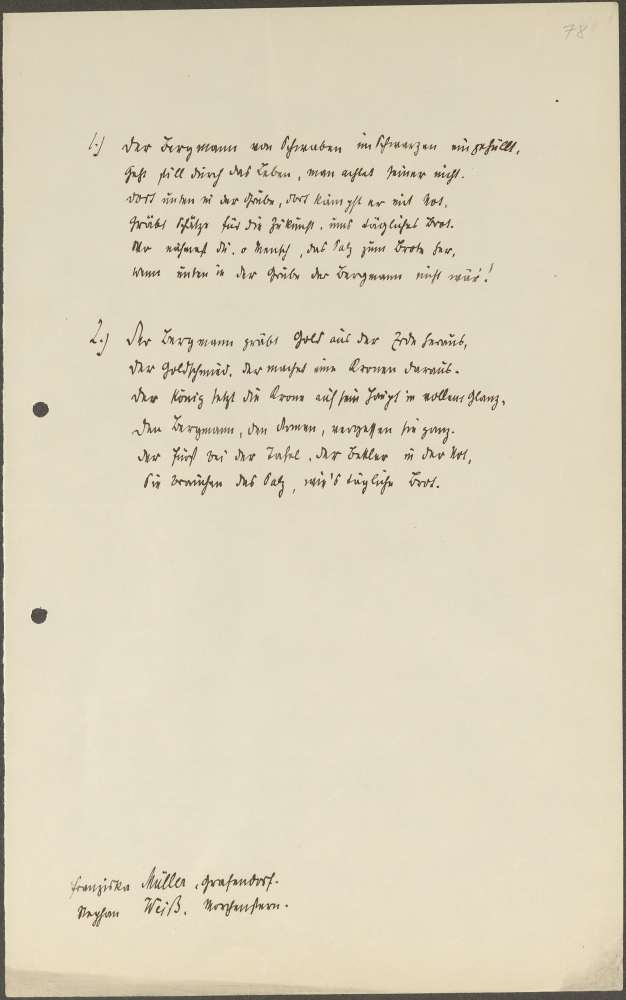 78
1.) Der Bergmann von Schwaben im Schwarzen eingehüllt,
Geht still durch das Leben, man achtet seiner nicht.
Dort unten in der Grube, dort kämpft er mit Not,
Gräbt Schätze für die Zukunft, ums tägliches Brot.
Wo nähmest du, o Mensch, das Salz zum Brote her,
wenn unten in der Grube der Bergmann nicht wär'!
2.) Der Bergmann gräbt Gold aus der Erde heraus,
der Goldschmied, der machet eine Kronen daraus.
Der König setzt die Krone auf sein Haupt in vollem Glanz,
Den Bergmann, den Armen, vergessen sie ganz.
Der Fürst bei der Tafel, der Bettler in der Not,
Sie brauchen das Salz, wie's tägliche Brot.
Franziska Müller, Grafendorf.
Stephan Weiß, Morgenstern.